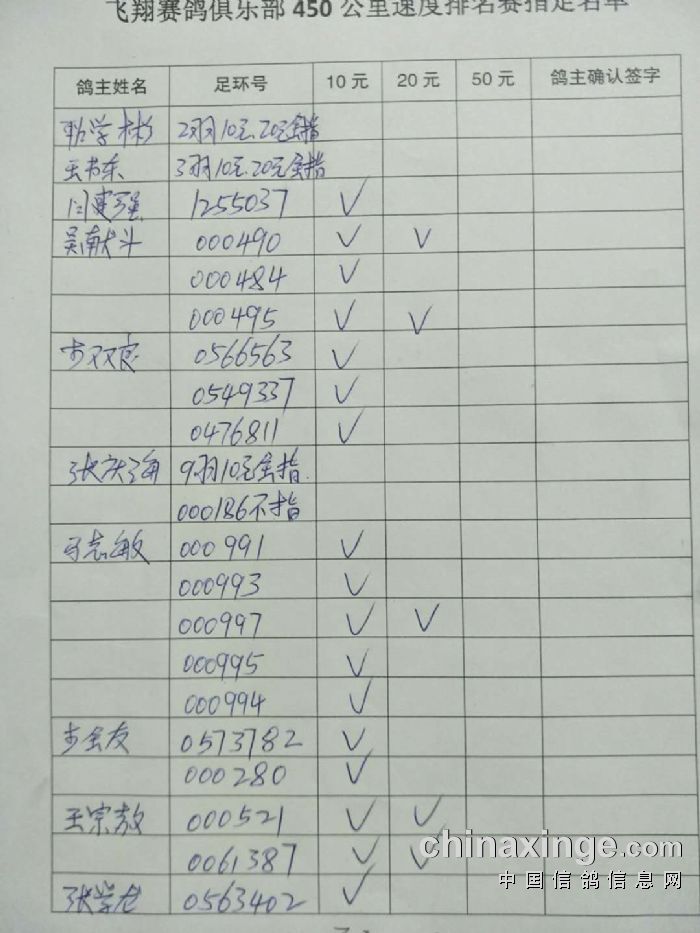 飞翔赛鸽俱乐部 450 公里速度排名赛指定名单
鸽主姓名 足环号 10 元 20 元 50 元 鸽主确认签字
学彬 2羽10元.20元全指
王书东 3羽10元.20元全指
闫 强 1255037 √
吴献斗 000490 √ √
000484 √
000495 √ √
步双良 0566563 √
0549337 √
0476811 √
张庆海 9羽10元全指.
000186不指
马志敏 000991 √
000993 √
000997 √ √
000995 √
000994 √
步金友 0573782 √
000280 √
王宗敖 000521 √ √
0061387 √ √
张学龙 0563402 √
chinaxinge.com
中国信鸽信息网